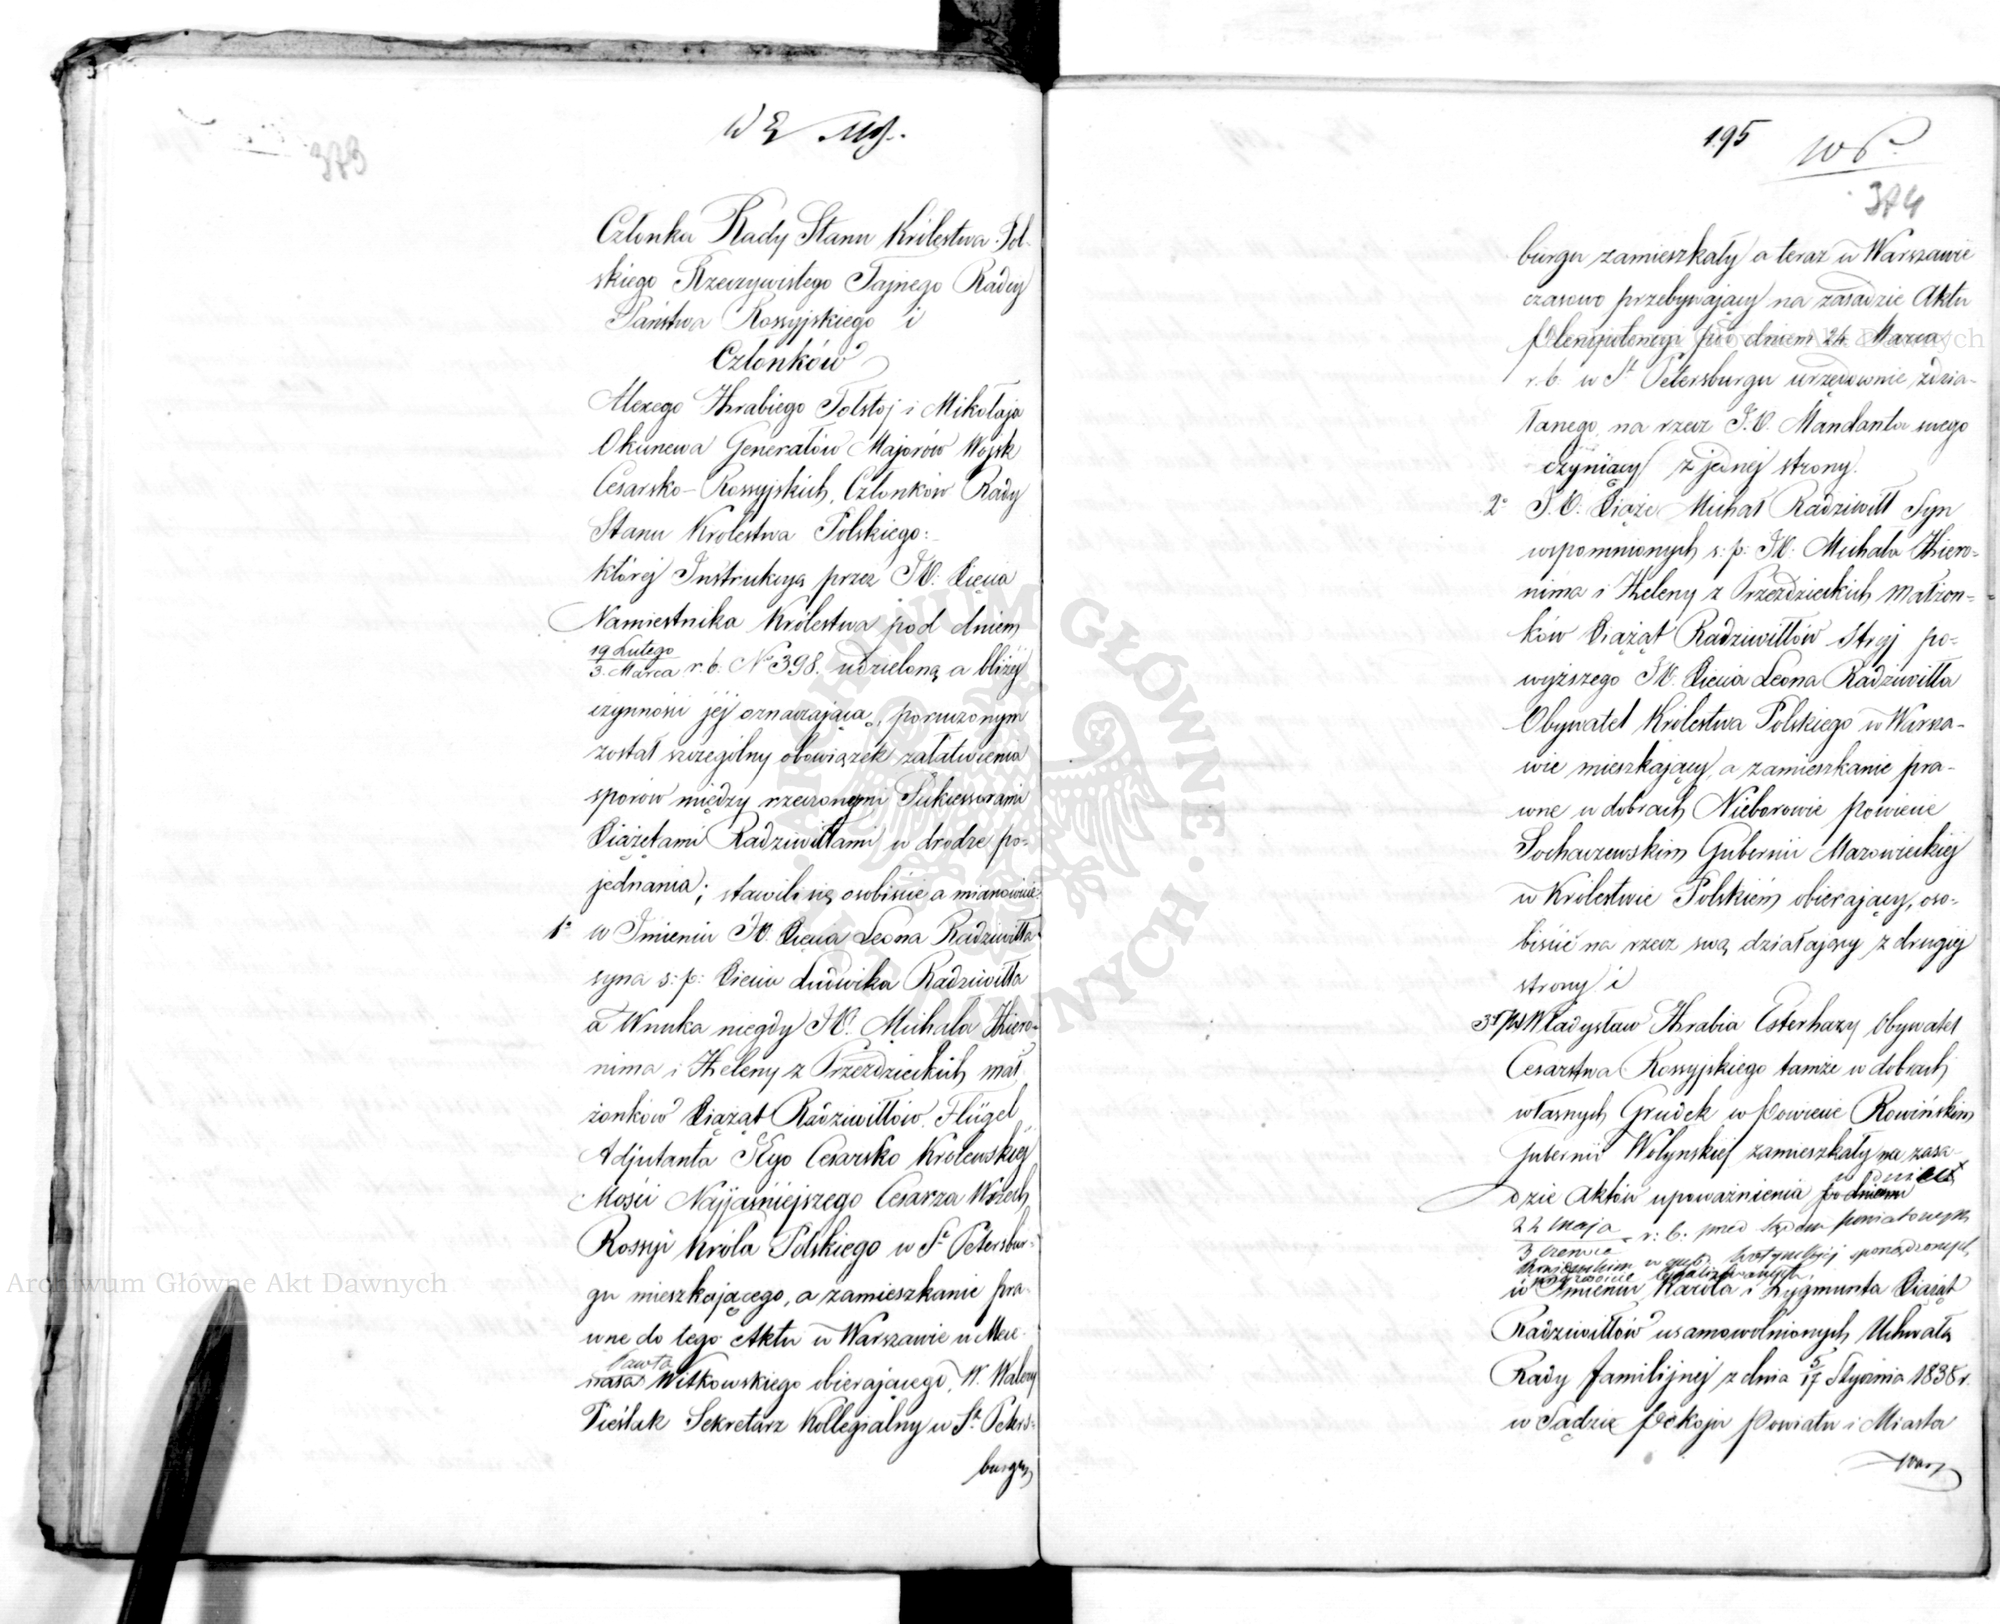 373
Członka Rady Stanu Królestwa Pol-
skiego Rzeczywistego Tajnego Radcy
Państwa Rossyjskiego i
Członków
Alexego Hrabiego Tołstoj i Mikołaja
Okunewa Generałów Majorów Wojsk
Cesarsko-Rossyjskich, Członków Rady
Stanu Królestwa Polskiego:
której Instrukcyą przez JO: Xięcia
Namiestnika Królestwa pod dniem
19 Lutego
3. Marca r. b. No 398. udzieloną a bliżej
czynności jej oznaczającą, poruczonym
został szczególny obowiązek załatwienia
sporów między rzeczonymi Sukcessorami
Xiążętami Radziwiłłami w drodze po-
jednania; stawili się osobiście a mianowicie:
1o w Imieniu JO. Xięcia Leona Radziwiłła
syna s: p: Xięcia Ludwika Radziwiłła
a Wnuka niegdy JO. Michała Hiero-
nima i Heleny z Przezdzieckich mał-
żonków Xiążąt Radziwiłłów Flügel
Adjutanta Jego Cesarsko Królewskiej
Mości Najjaśniejszego Cesarza Wszech
Rossyi Króla Polskiego w St Petersbur-
gu mieszkającego, a zamieszkanie pra-
wne do tego Aktu w Warszawie u Mece-
Pawła
nasa Witkowskiego obierającego, W. Walery
Pieślak Sekretarz Kollegialny w St. Peters-
burgu
195
374
burgu zamieszkały a teraz w Warszawie
czasowo przebywający na zasadzie Aktu
Plenipotencyi pod dniem 24 Marca
r. b. w St Petersburgu urzędownie zdzia-
łanego na rzecz J.O. Mandanta swego
czyniący z jednej strony.
2o J.O. Xiąże Michał Radziwiłł Syn
wspomnionych s: p: JO: Michała Hiero-
nima i Heleny z Przezdzieckich Małżon-
ków Xiążąt Radziwiłłów Stryj po-
wyższego JO. Xięcia Leona Radziwiłła
Obywatel Królestwa Polskiego w Warsza-
wie mieszkający, a zamieszkanie pra-
wne w dobrach Nieborowie Powiecie
Sochaczewskim Gubernii Mazowieckiej
w Królestwie Polskiém obierający, oso-
biście na rzecz swą działający z drugiej
strony i
3o JW Władysław Hrabia Esterhazy Obywatel
Cesarstwa Rossyjskiego tamże w dobrach
własnych Grudek w Powiecie Rowińskim
Gubernii Wołynskiej zamieszkały na zasa-
dzie Aktów upoważnienia pod dniem
22 Maja
3 Czerwca r: b: przed Sądem Powiatowym
w Imieniu Karola i Zygmunta Xiążąt
Radziwiłłów usamowolnionych Uchwałą
Rady familijnej z dnia 5/17 Stycznia 1838 r.
w Sądzie Pokoju Powiatu i Miasta
War
Archiwum Główne Akt Dawnych
ARCHIWUM GŁÓWNE AKT DAWNYCH